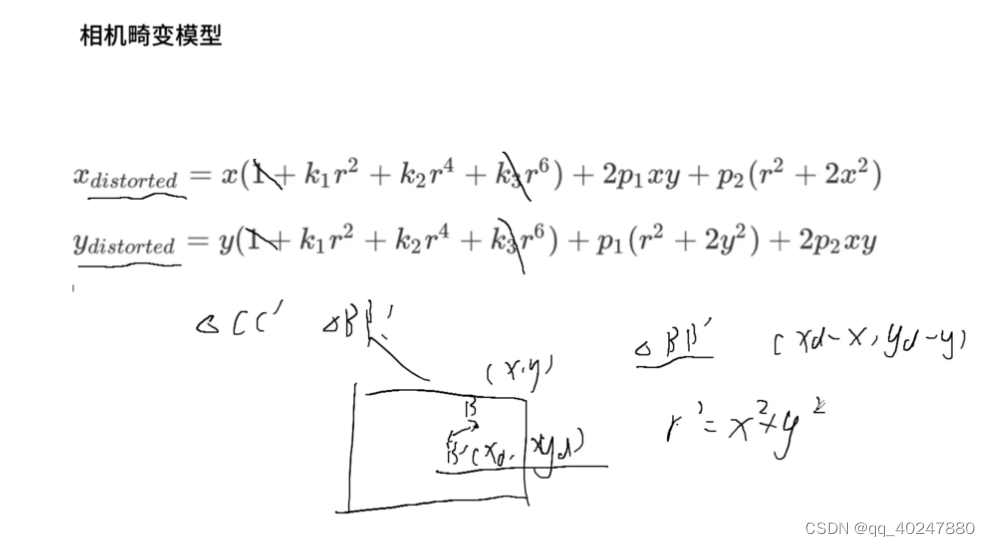 相机畸变模型
x_distorted = x(1 + k₁r² + k₂r⁴ + k₃r⁶) + 2p₁xy + p₂(r² + 2x²)
y_distorted = y(1 + k₁r² + k₂r⁴ + k₃r⁶) + p₁(r² + 2y²) + 2p₂xy
△CC' △BB'
△BB' (xd-x, yd-y)
(x,y)
B
B'(xd, yd)
r² = x²+y²
CSDN @qq_40247880